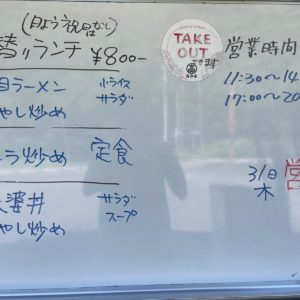 (日よう祝品なし)
替りランチ ¥800-
目ラーメン 小ライス
やし炒め サラダ
ニラ炒め 定食
婆丼 サラダ
やし炒め スープ
TAKE
OUT
できます
営業時間
11:30〜14
17:00〜20
31日
木